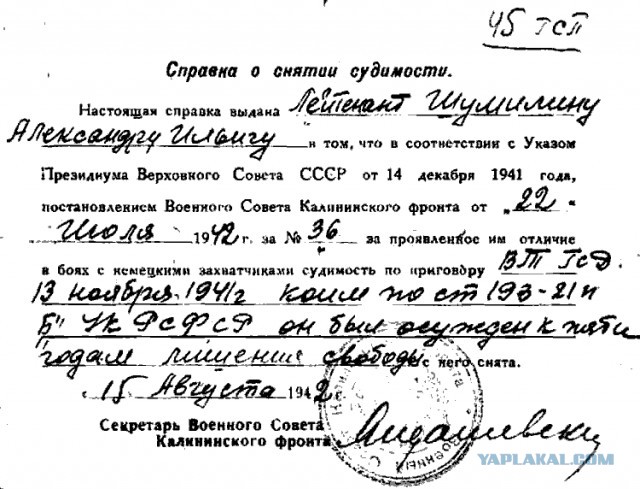 45 гсп
Справка о снятии судимости.
Настоящая справка выдана Лейтенант Шумилину
Александру Ильичу в том, что в соответствии с Указом
Президиума Верховного Совета СССР от 14 декабря 1941 года,
постановлением Военного Совета Калининского фронта от „22"
Июля 1942 г. за № 36 за проявленное им отличие
в боях с немецкими захватчиками судимость по приговору ВТ ГсД.
13 ноября 1941г коим по ст 193-21 п
Б" УК РСФСР он был осужден к пяти
годам лишения свободы с него снята.
15 Августа 1942 г.
Секретарь Военного Совета
Калининского фронта
YAPLAKAL.COM